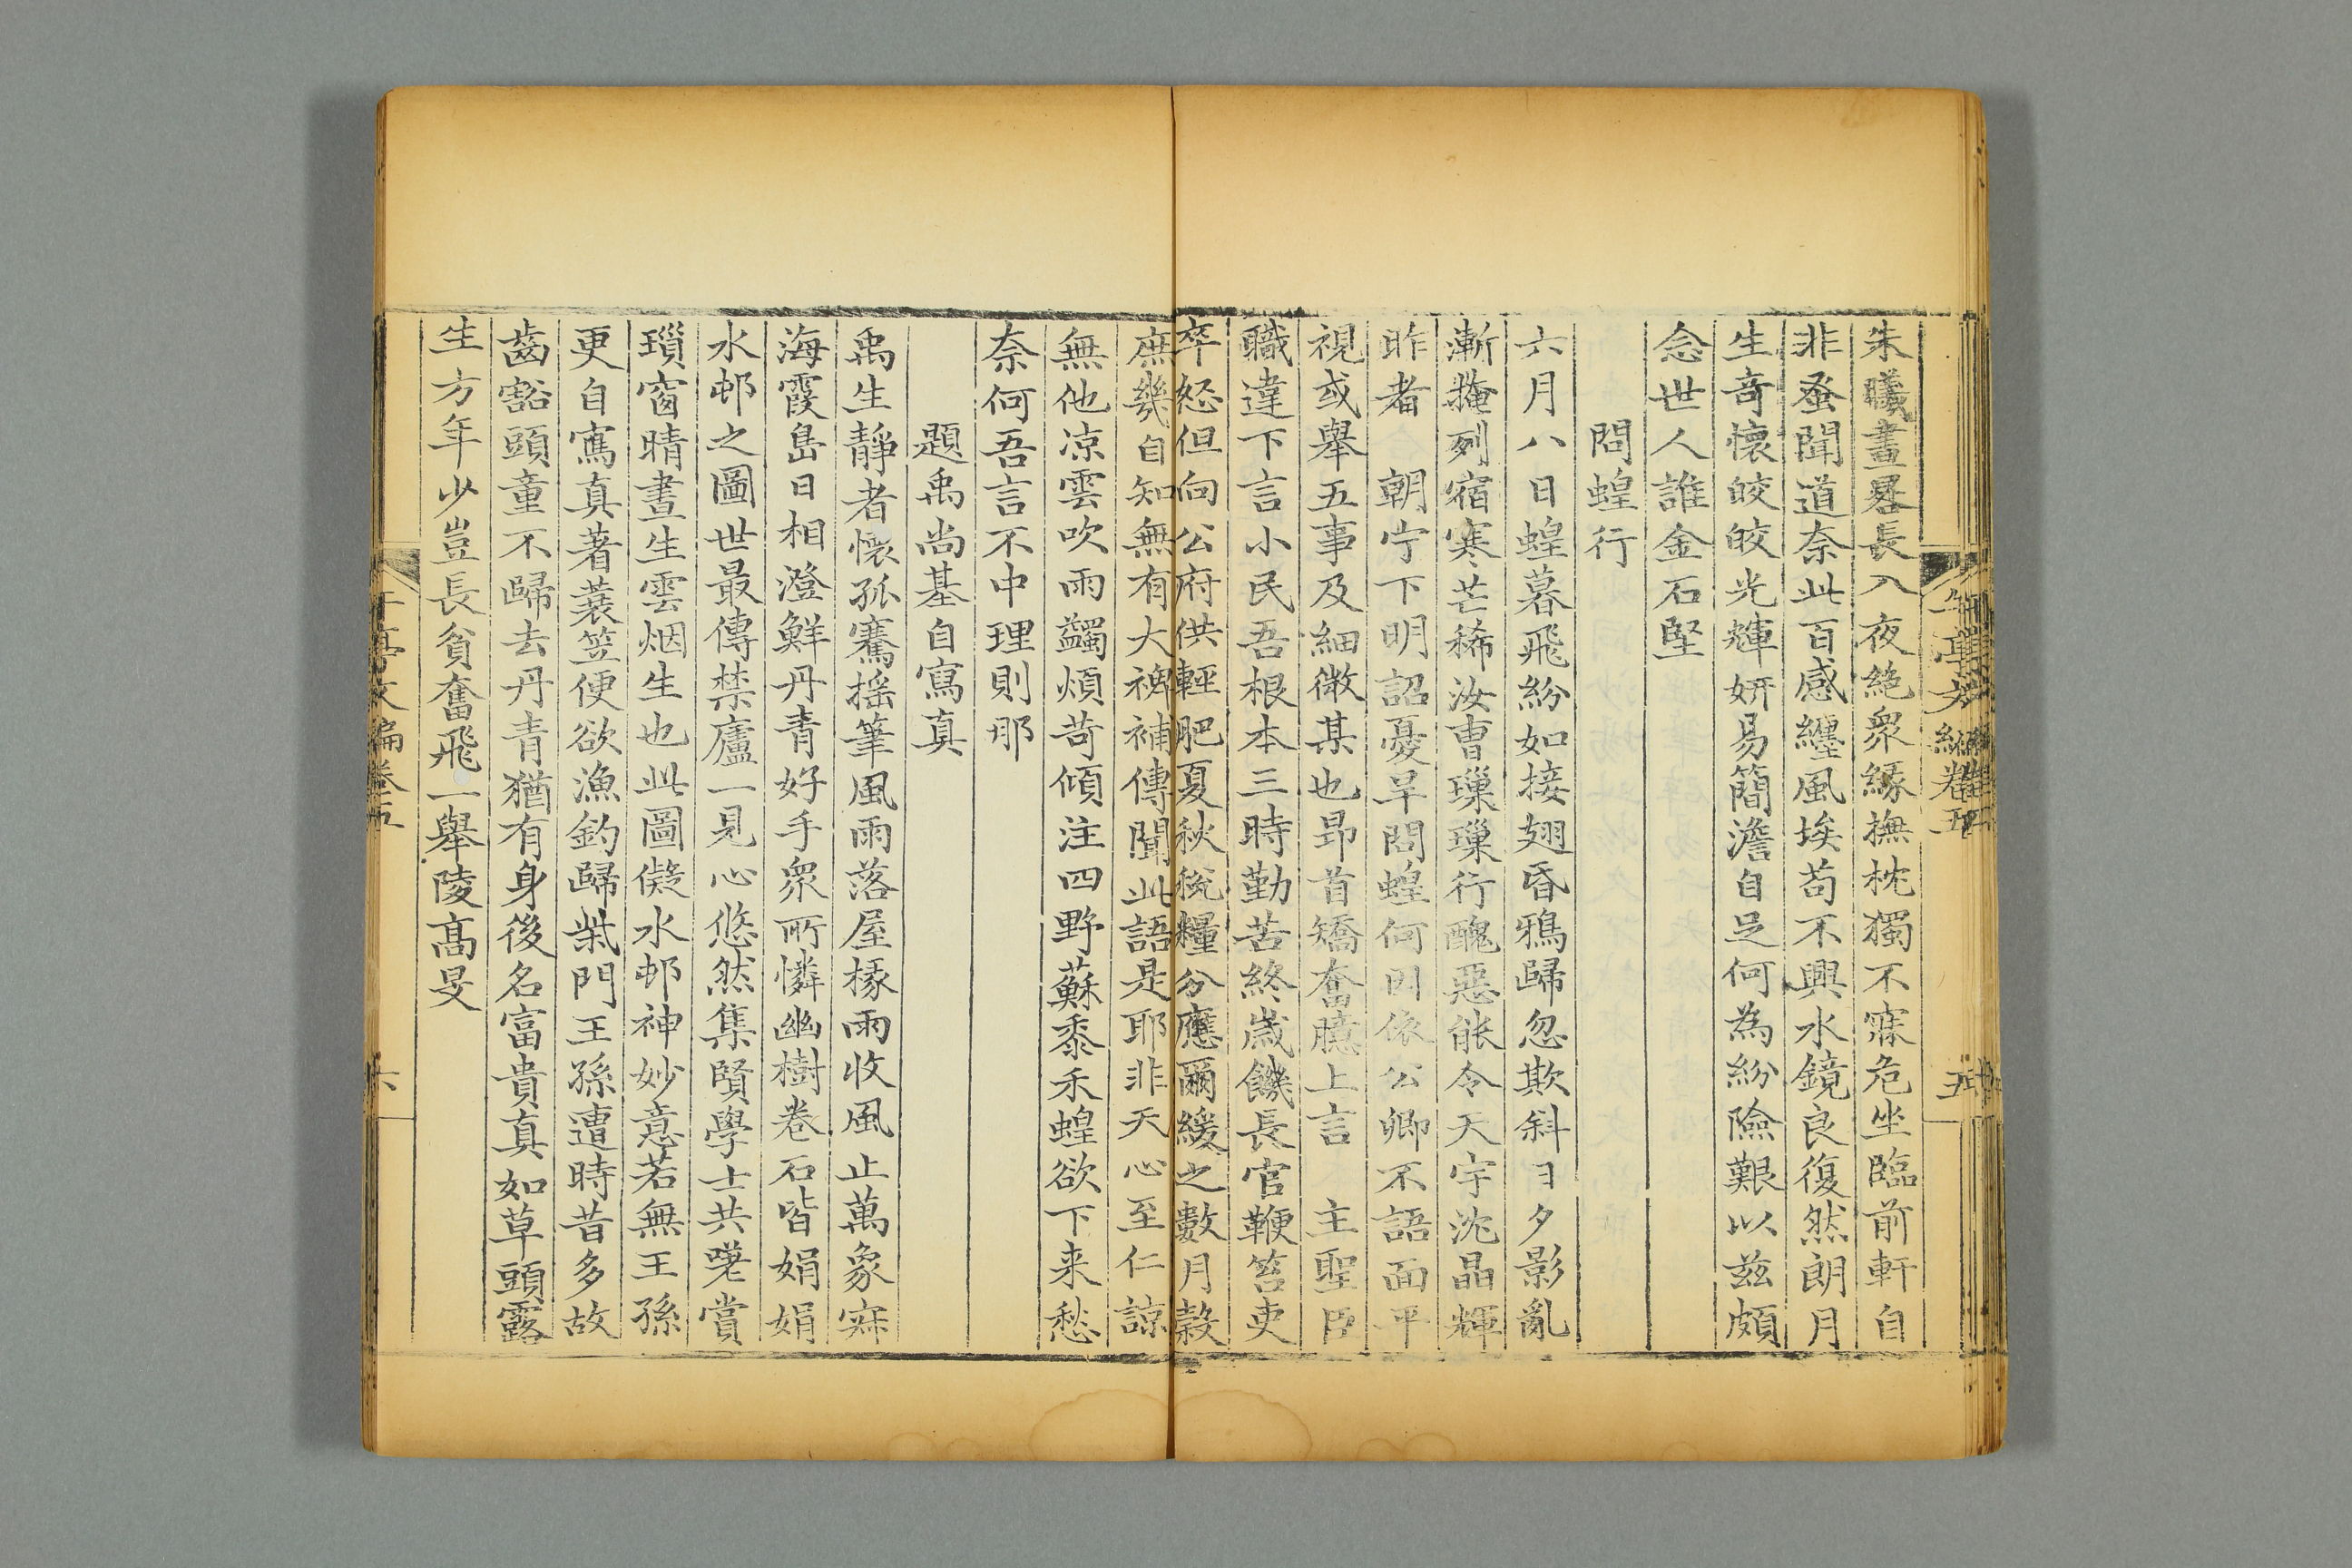 午亭文編卷五
五
朱曦晝晷長入夜絕衆緣撫枕獨不寐危坐臨前軒自
非蚤聞道奈此百感纏風埃苟不興水鏡良復然朗月
生奇懷皎皎光輝妍易簡澹自足何為紛險艱以茲頗
念世人誰金石堅
問蝗行
六月八日蝗暮飛紛如接翅昏鴉歸忽欺斜日夕影亂
漸掩列宿寒芒稀汝曹璅璅行醜惡能令天宇沈晶輝
昨者 朝宁下明詔憂旱問蝗何因依公卿不語面平
視或舉五事及細微某也昂首矯奮臆上言 主聖臣
職違下言小民吾根本三時勤苦終歲饑長官鞭笞吏
卒怒但向公府供輕肥夏秋稅糧分應爾緩之數月穀
庶幾自知無有大裨補傳聞此語是耶非天心至仁諒
無他凉雲吹雨蠲煩苛傾注四野蘇黍禾蝗欲下来愁
奈何吾言不中理則那
題禹尚基自寫真
禹生靜者懷孤騫摇筆風雨落屋椽雨收風止萬象寂
海霞島日相澄鮮丹青好手衆所憐幽樹卷石皆娟娟
水邨之圖世最傳禁廬一見心悠然集賢學士共嗟賞
瑣窗晴晝生雲烟生也此圖儗水邨神妙意若無王孫
更自寫真著蓑笠便欲漁釣歸柴門王孫遭時昔多故
齒豁頭童不歸去丹青猶有身後名富貴真如草頭露
生方年少豈長貧奮飛一舉陵高旻
午亭文編卷五
六